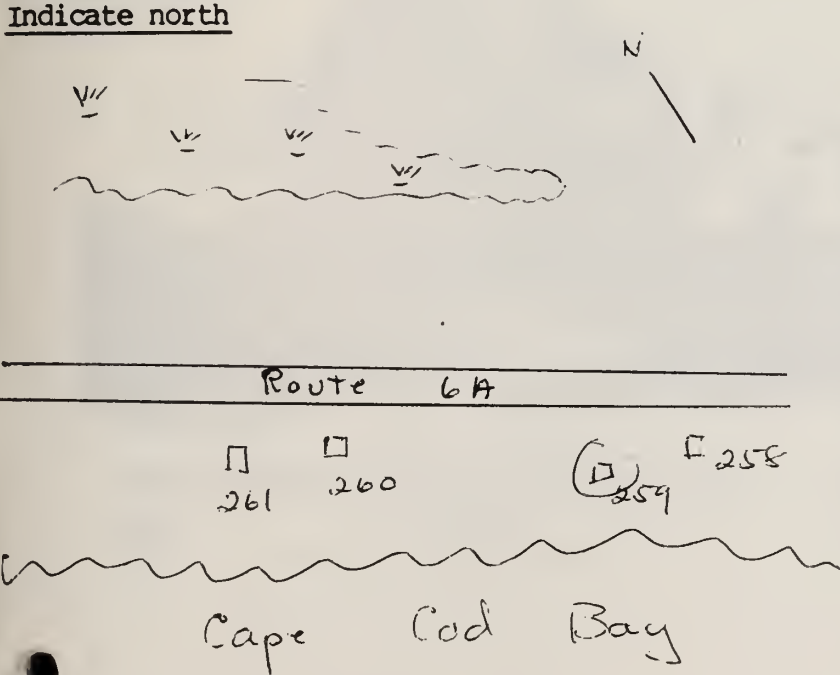 Indicate north
N
Route 6A
261 260 259 258
Cape Cod Bay